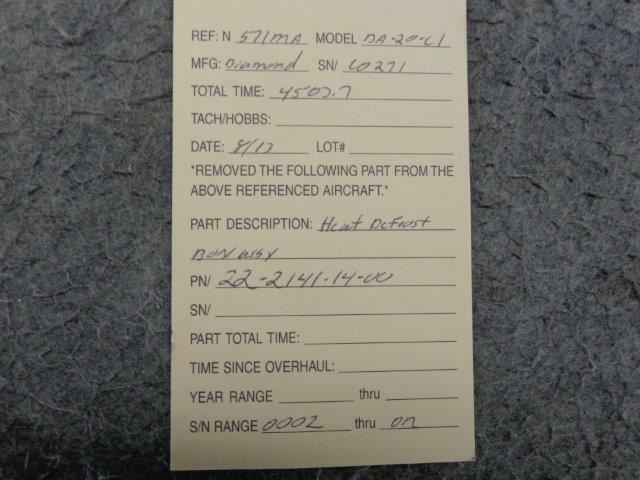 REF: N 571MA MODEL DA-20-C1
MFG: Diamond SN/ C0271
TOTAL TIME: 4507.7
TACH/HOBBS:
DATE: 8/13 LOT#
*REMOVED THE FOLLOWING PART FROM THE
ABOVE REFERENCED AIRCRAFT.*
PART DESCRIPTION: Heat Defrost
Box assy
PN/ 22-2141-14-00
SN/
PART TOTAL TIME:
TIME SINCE OVERHAUL:
YEAR RANGE thru
S/N RANGE 0002 thru on